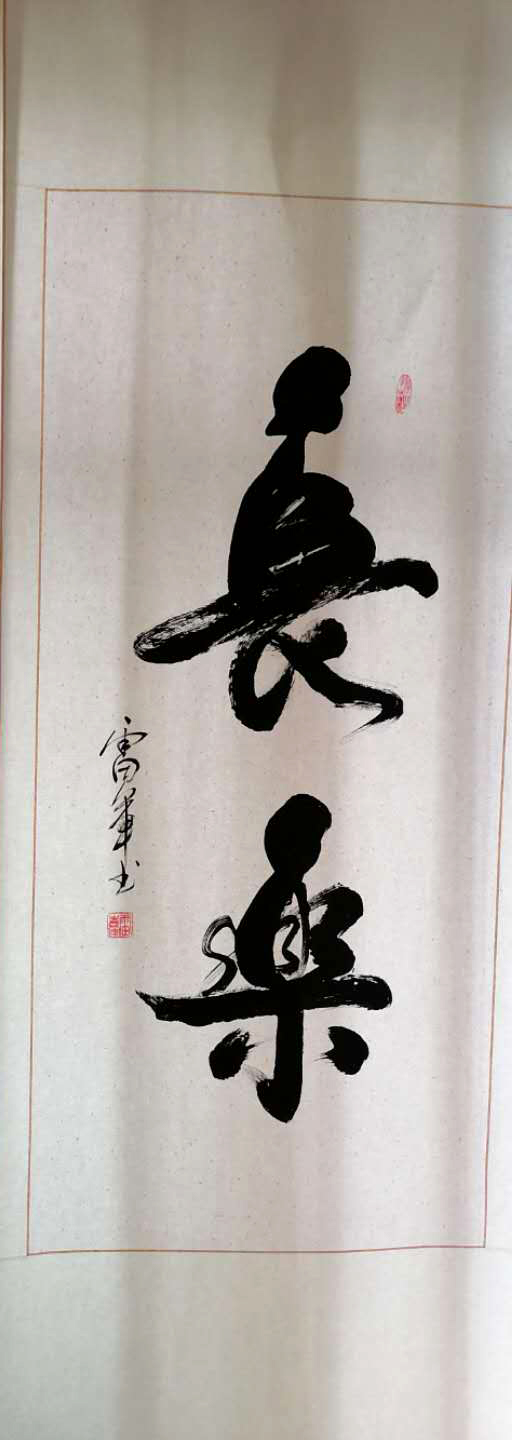 長樂
雷軍书